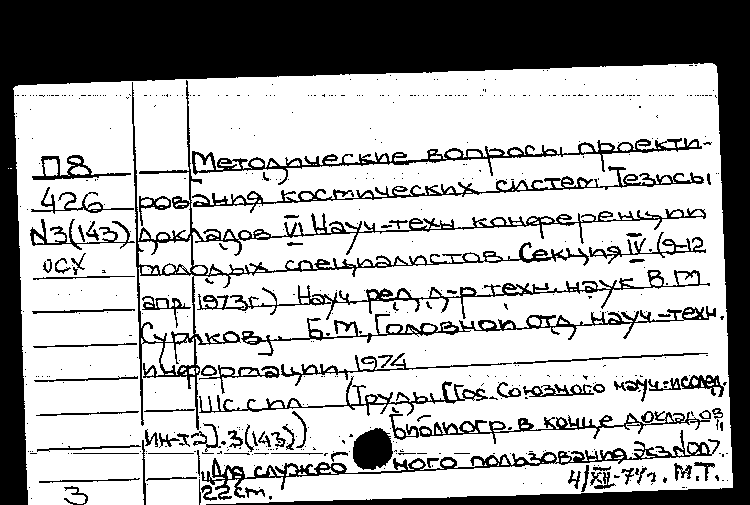 П8 Методические вопросы проекти-
426 рования космических систем. Тезисы
N3(143) докладов VI Науч-техн конференции
осх. молодых специалистов. Секция IV. (9-12
апр 1973г.) Науч ред. д-р техн. наук В.М.
Сурикову. Б.М., Головной отд. науч-техн.
информации, 1974
111с. с илл (Труды [Гос. Союзного науч-исслед.
ин-та]. 3(143)) Библиогр. в конце докладов
"Для служебного пользования. Экз. №07."
3 22 см. 4/XII-74г. М.Т.